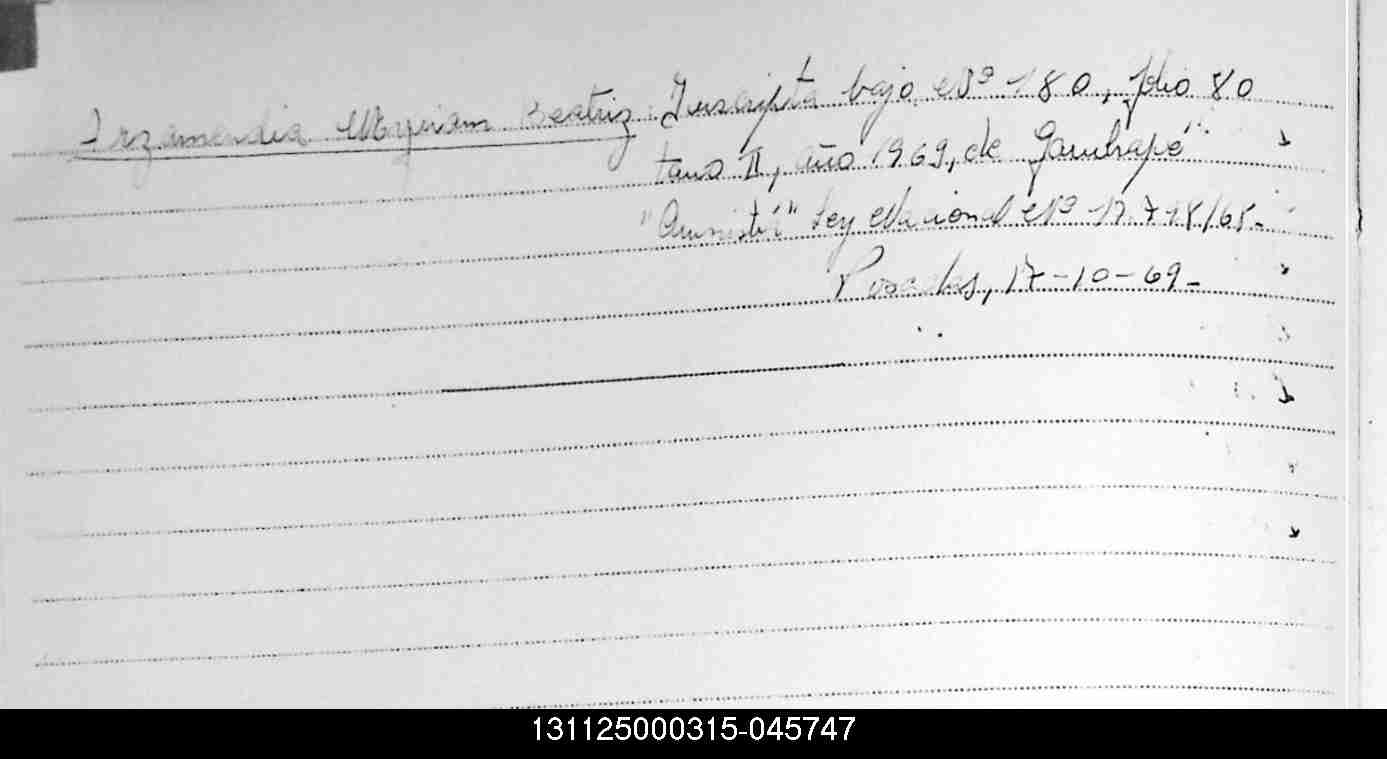 Irzamendia Myriam Beatriz: Inscripta bajo Nº 180, folio 80
tomo II, año 1969, de Garuhapé"
"Amnistía" Ley Nacional Nº 17.718/68-
Posadas, 17-10-69-
131125000315-045747